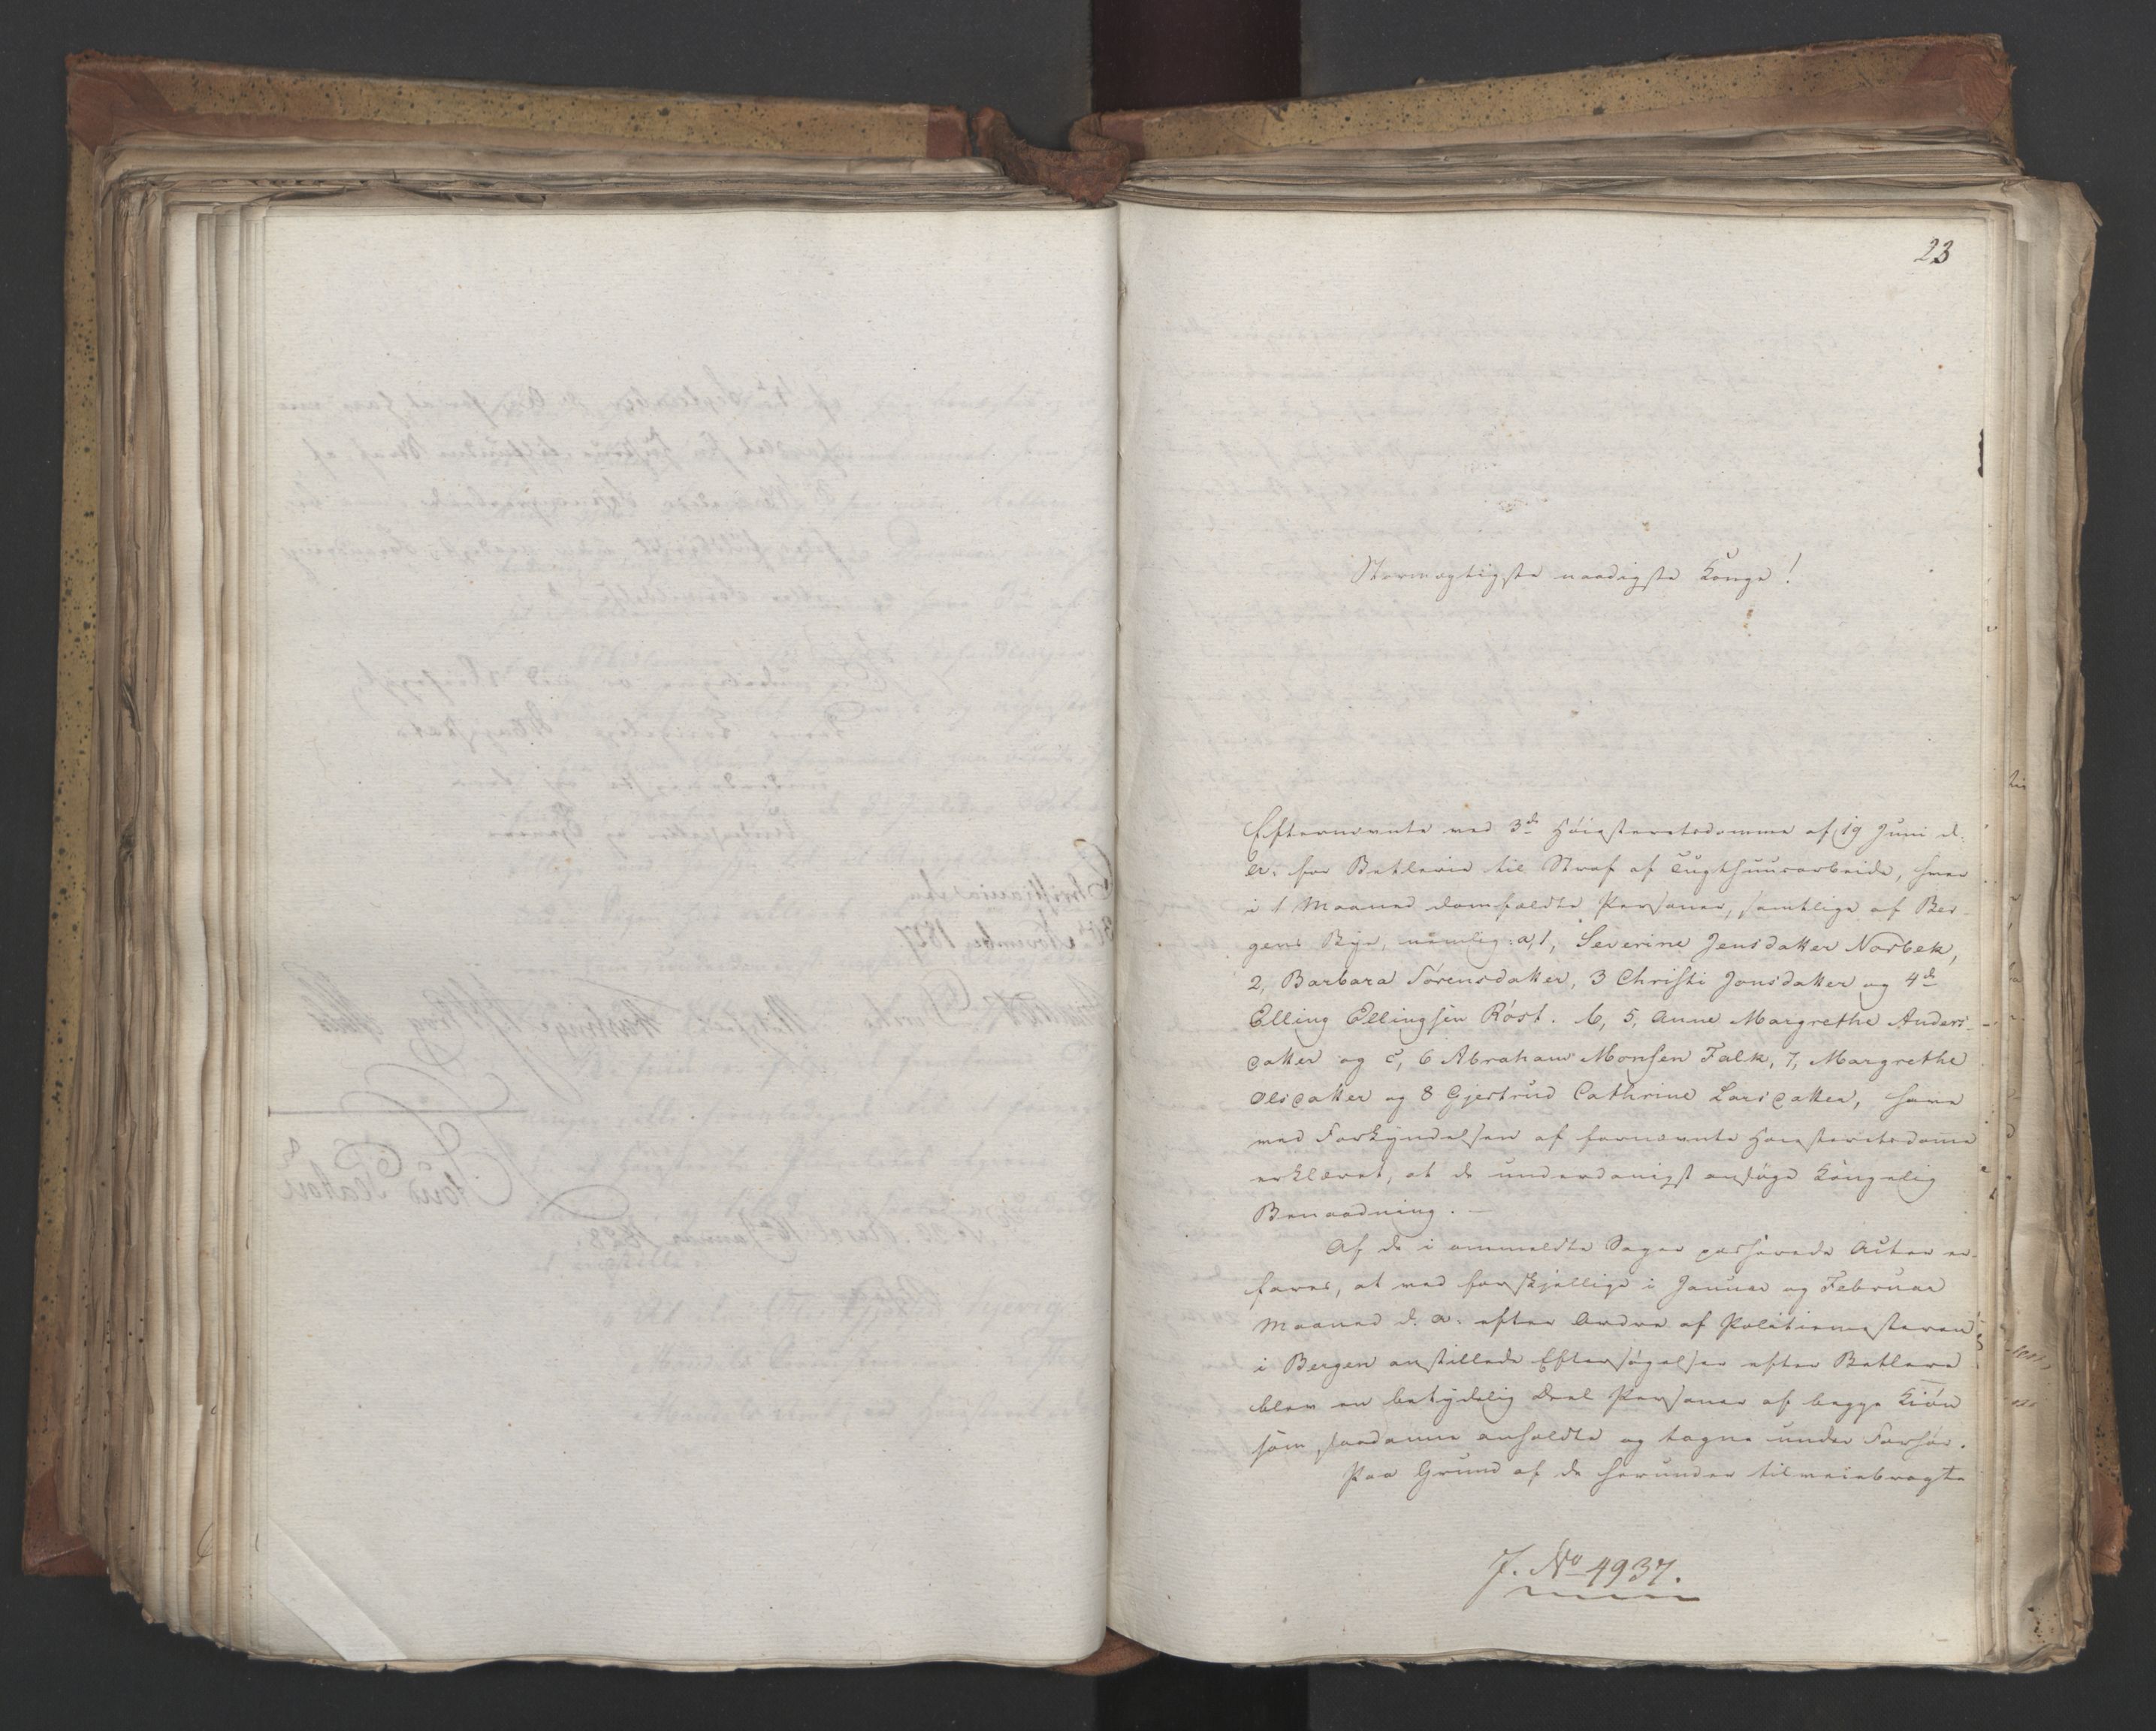 23
Stormægtigste naadigste Konge!
Efternævnte ved 3de Høiesteretsdomme af 19 Juni d.
A. for Betlerie til Straf af Tugthuusarbeide, hver
i 1 Maaned domfældte Personer, samtlige af Ber-
gens Bye, nemlig: a, 1, Severine Jensdatter Norbek,
2, Barbara Sørensdatter, 3 Christi Jonsdatter og 4de
Elling Ellingsen Røst. b, 5, Anne Margrethe Anders-
datter og c, 6 Abraham Monsen Falk, 7, Margrethe
Olsdatter og 8 Gjertrud Cathrine Larsdatter, have
ved Forkyndelsen af fornævnte Høiesteretsdomme
erklæret, at de underdanigst ansøge Kongelig
Benaadning. —
Af de i anmeldte Sager passerede Acter er-
fares, at ved forskjellige i Januar og Februar
Maaned d. A. efter Ordre af Politiemesteren
i Bergen anstillede Eftersøgelser efter Betlere
blev en betydelig Deel Personer af begge Kiøn
som saadanne anholdte og tagne under Forhør.
Paa Grund af de herunder tilveiebragte
J. No 4937.